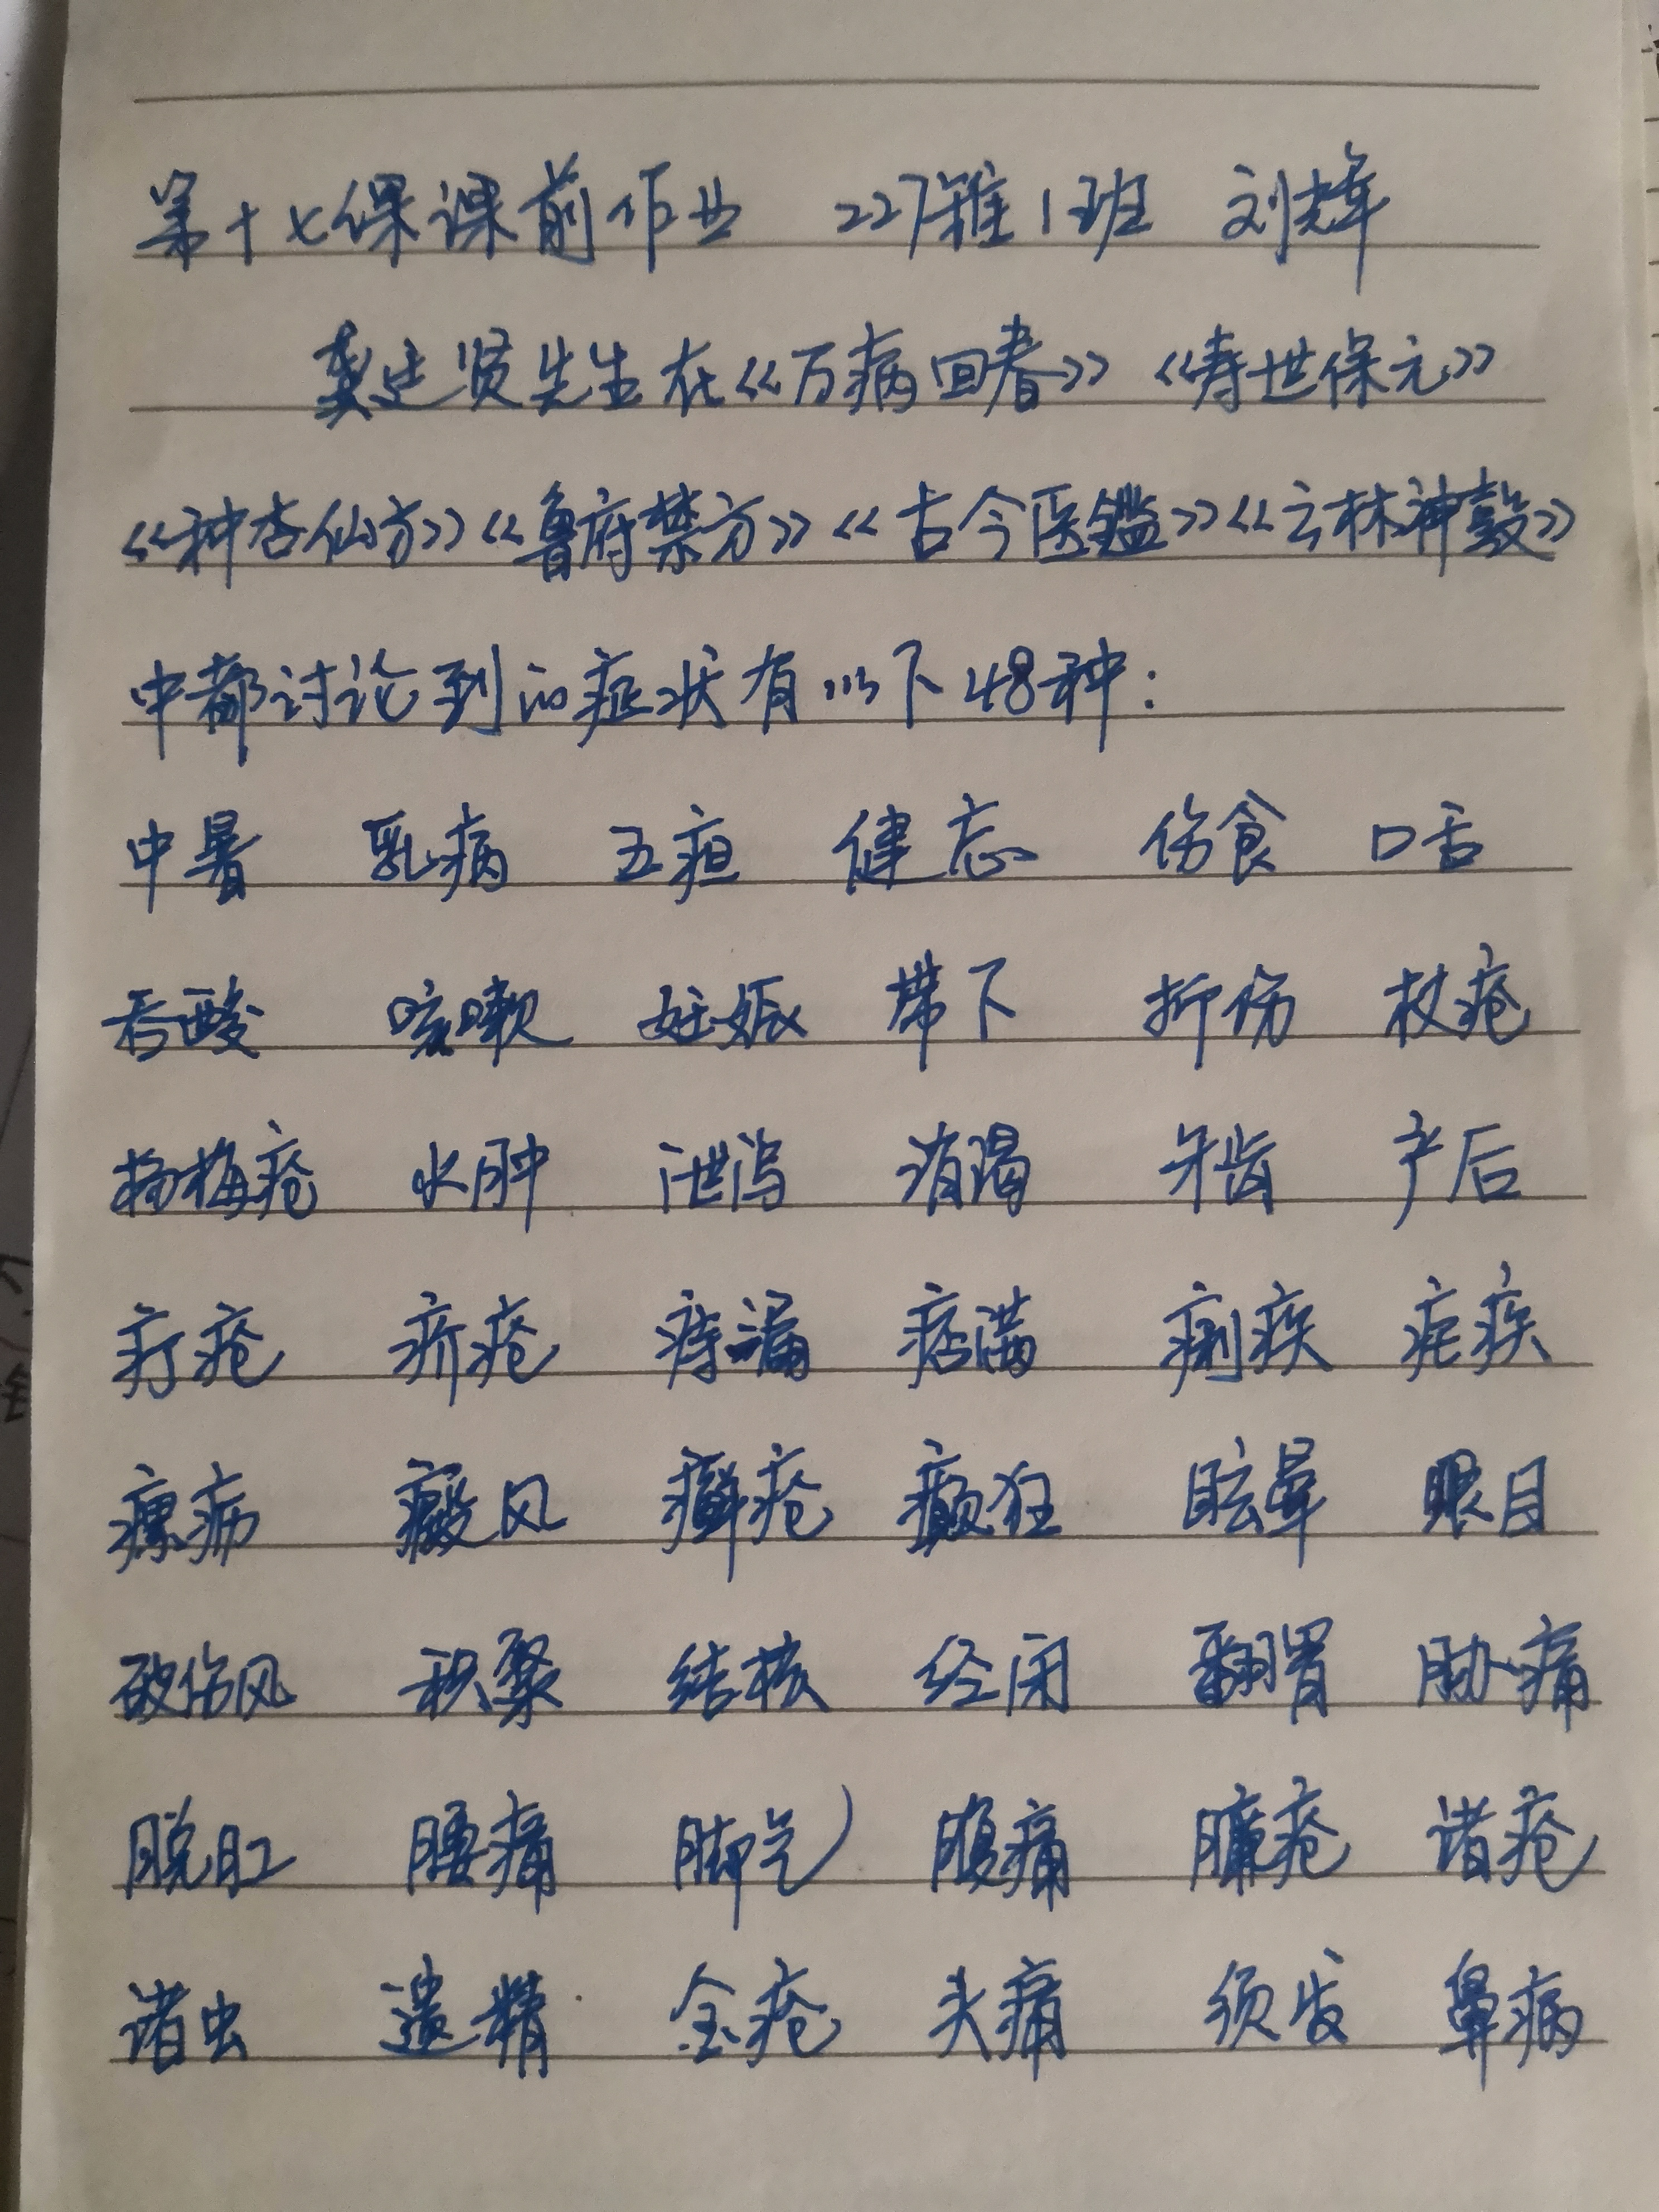 第十七课课前作业 227雅1班 刘辉
龚廷贤先生在《万病回春》《寿世保元》
《种杏仙方》《鲁府禁方》《古今医鑑》《云林神彀》
中都讨论到的症状有以下48种：
中暑 乳病 五疸 健忘 伤食 口舌
吞酸 咳嗽 妊娠 带下 折伤 杖疮
杨梅疮 水肿 泄泻 消渴 牙齿 产后
疔疮 疥疮 痔漏 痞满 痢疾 疟疾
瘰疬 癜风 癣疮 癫狂 眩晕 眼目
破伤风 积聚 结核 经闭 翻胃 胁痛
脱肛 腰痛 脚气 腹痛 臁疮 诸疮
诸虫 遗精 金疮 头痛 须发 鼻病